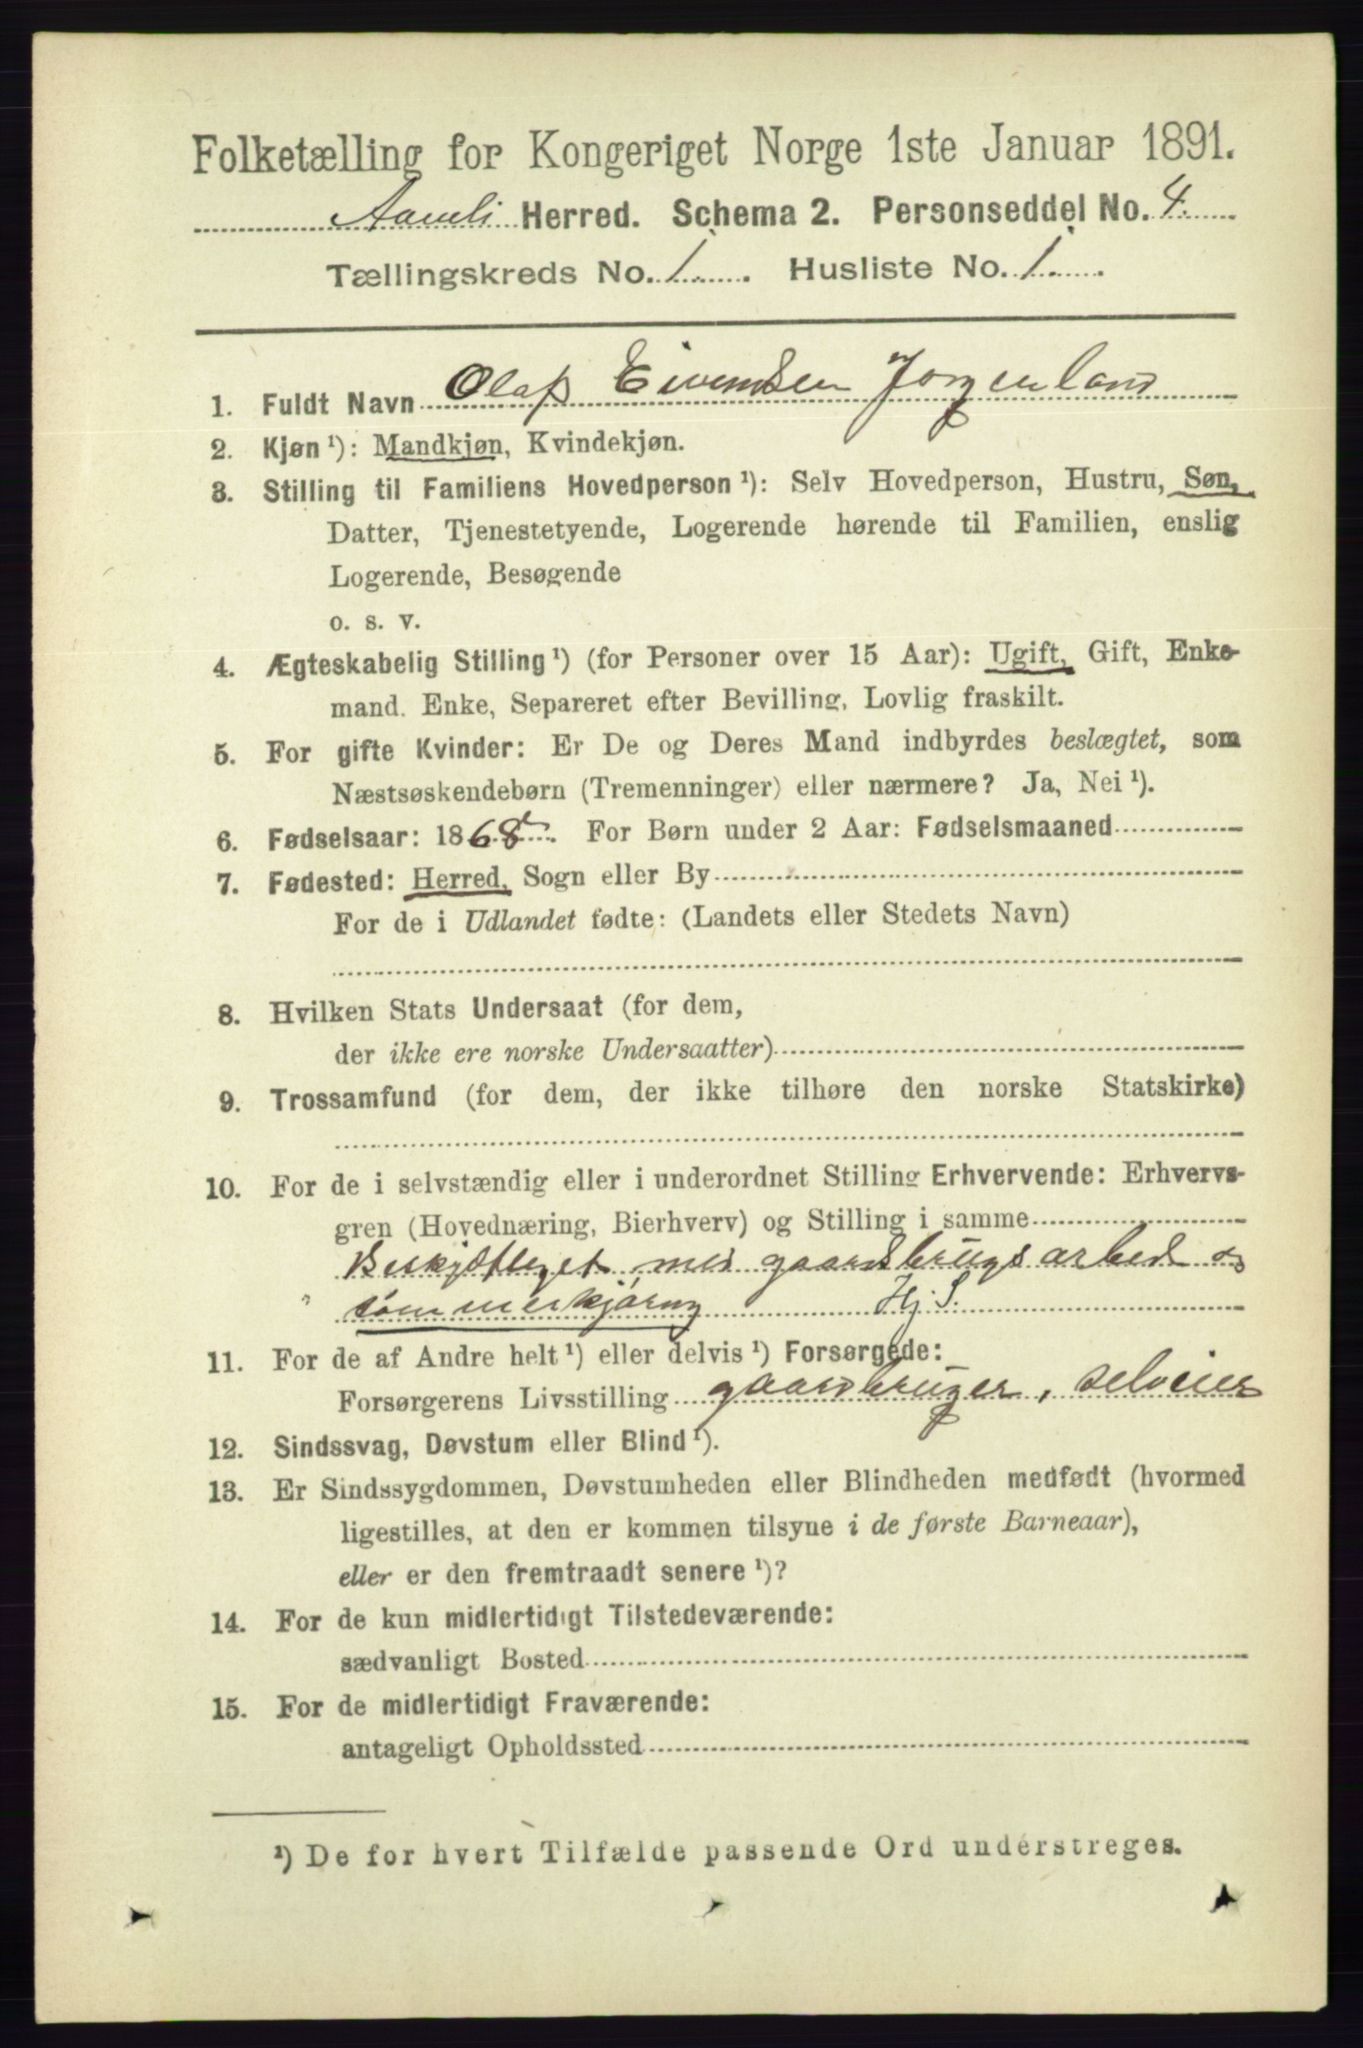 Folketælling for Kongeriget Norge 1ste Januar 1891.
Aamli Herred. Schema 2. Personseddel No. 4.
Tællingskreds No. 1. Husliste No. 1.
1. Fuldt Navn Olaf Eivendsen Jorgenland
2. Kjøn ¹): Mandkjøn, Kvindekjøn.
3. Stilling til Familiens Hovedperson ¹): Selv Hovedperson, Hustru, Søn,
Datter, Tjenestetyende, Logerende hørende til Familien, enslig
Logerende, Besøgende
o. s. v.
4. Ægteskabelig Stilling ¹) (for Personer over 15 Aar): Ugift, Gift, Enke-
mand. Enke, Separeret efter Bevilling, Lovlig fraskilt.
5. For gifte Kvinder: Er De og Deres Mand indbyrdes beslægtet, som
Næstsøskendebørn (Tremenninger) eller nærmere? Ja, Nei ¹).
6. Fødselsaar: 1868. For Børn under 2 Aar: Fødselsmaaned
7. Fødested: Herred, Sogn eller By
For de i Udlandet fødte: (Landets eller Stedets Navn)
8. Hvilken Stats Undersaat (for dem,
der ikke ere norske Undersaatter)
9. Trossamfund (for dem, der ikke tilhøre den norske Statskirke)
10. For de i selvstændig eller i underordnet Stilling Erhvervende: Erhvervs-
gren (Hovednæring, Bierhverv) og Stilling i samme
Beskjæftiget med gaardsbrugsarbeid og
tømmerkjøring Hj. S.
11. For de af Andre helt ¹) eller delvis ¹) Forsørgede:
Forsørgerens Livsstilling gaardbruger, selveier
12. Sindssvag, Døvstum eller Blind ¹).
13. Er Sindssygdommen, Døvstumheden eller Blindheden medfødt (hvormed
ligestilles, at den er kommen tilsyne i de første Barneaar),
eller er den fremtraadt senere ¹)?
14. For de kun midlertidigt Tilstedeværende:
sædvanligt Bosted
15. For de midlertidigt Fraværende:
antageligt Opholdssted
¹) De for hvert Tilfælde passende Ord understreges.